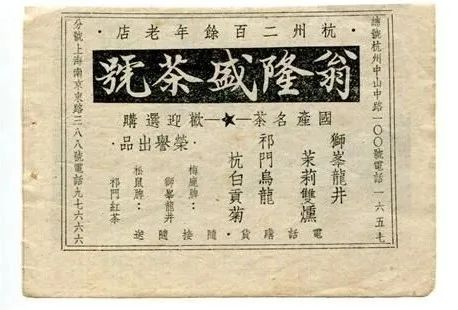 總號杭州中山中路一〇〇號電話一六五七
·杭州二百餘年老店·
翁隆盛茶號
國產名茶—★—歡迎選購
獅峯龍井
茉莉雙燻
祁門烏龍
杭白貢菊
·榮譽出品·
梅鹿牌：
獅峯龍井
松鼠牌：
祁門紅茶
電話購貨·隨接隨送
分號上海南京東路三八八號電話九七六六六